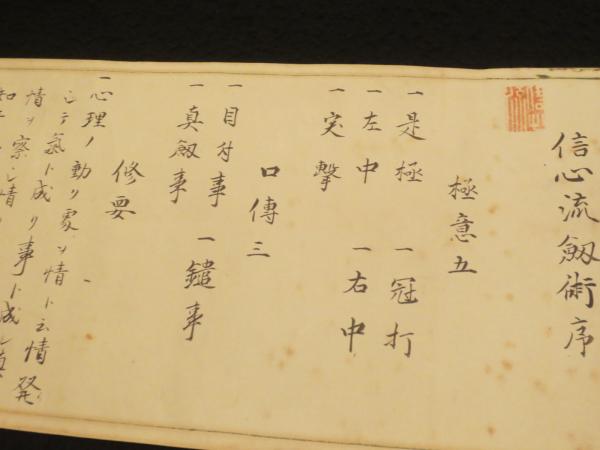 信心流劔術序
極意五
一是極 一冠打
一左中 一右中
一突撃
口傳三
一目付事
一真劔事 一鑓事
修要
一心理ノ動ク処ヲ情ト云情発
シテ氣ト成リ事ト成
情ヲ察シ情